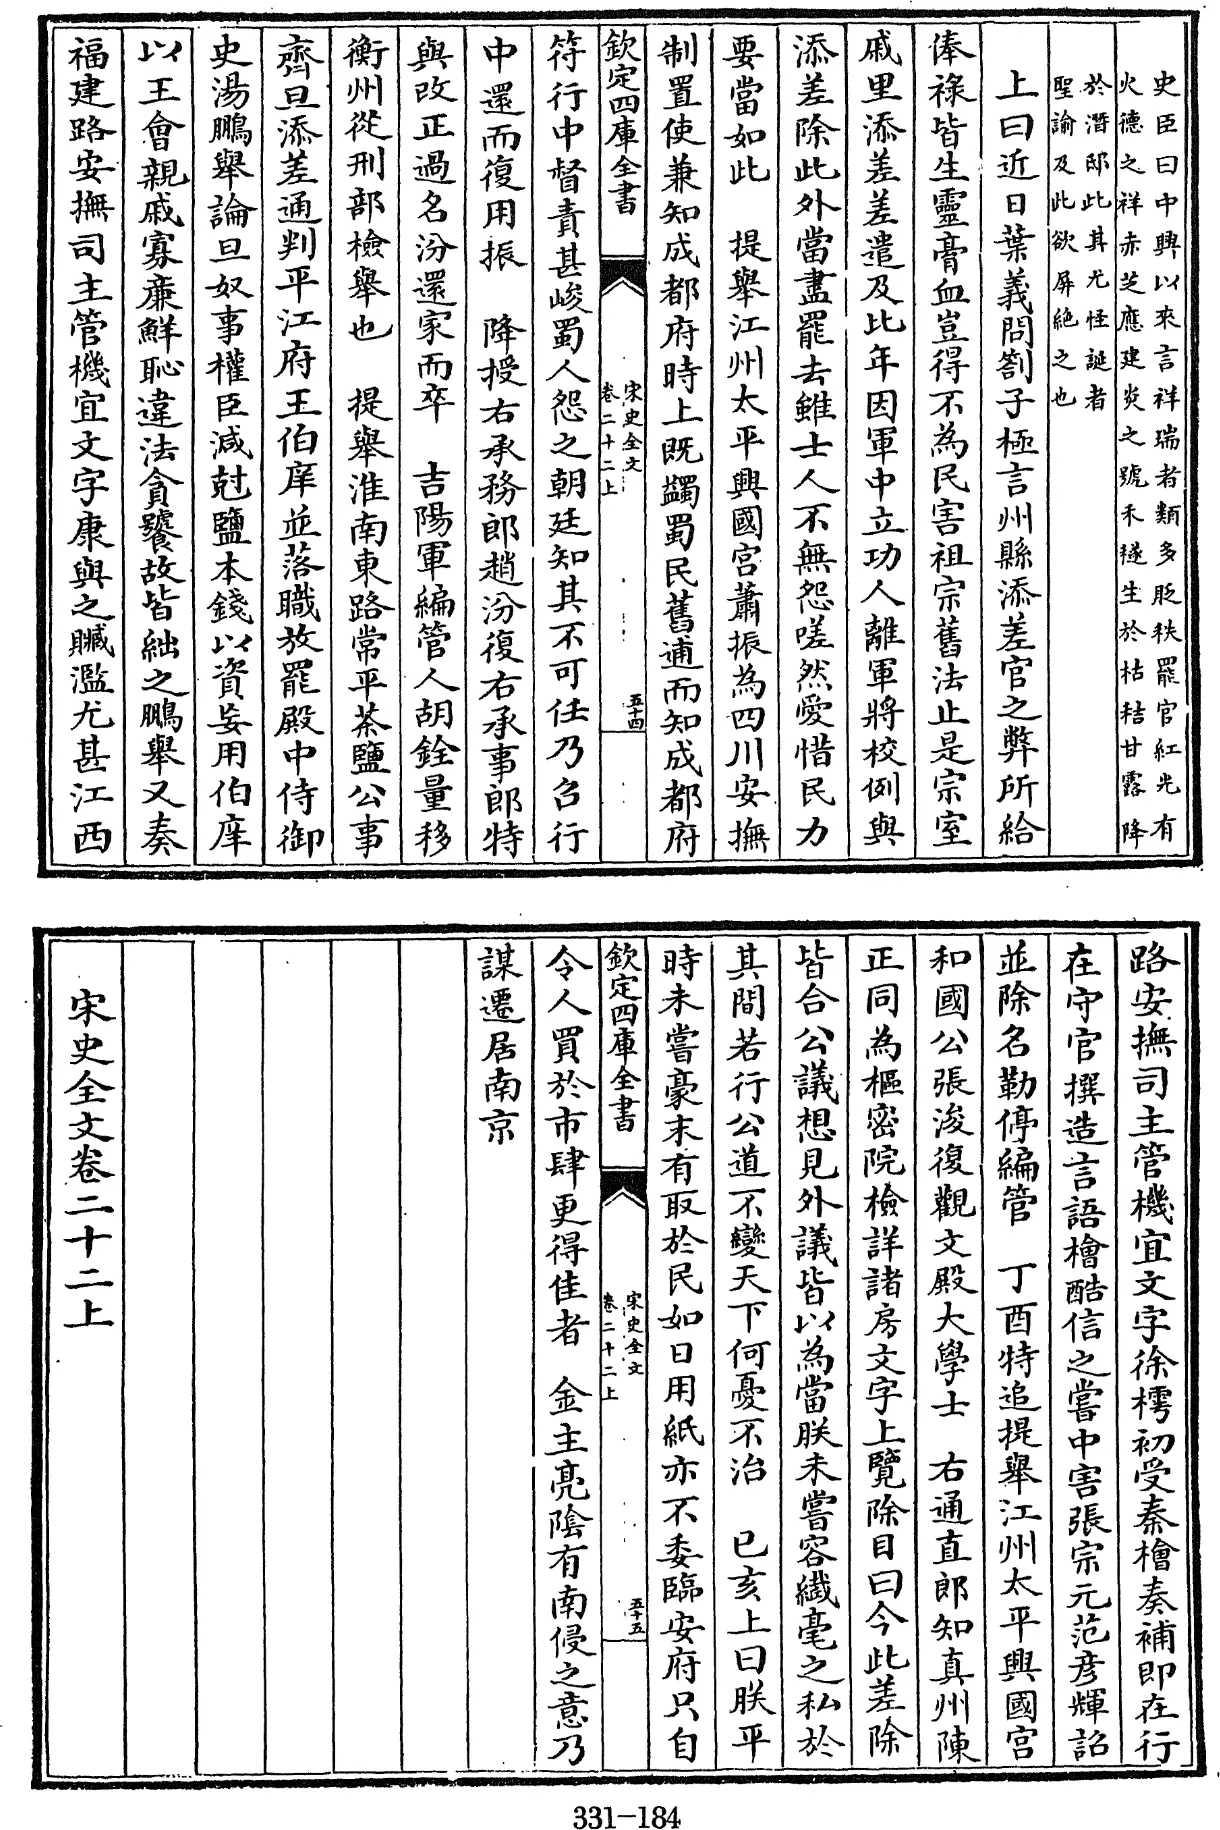 史臣曰中興以來言祥瑞者類多貶秩罷官紅光有
火德之祥赤芝應建炎之號禾穟生於枯秸甘露降
於潛邸此其尤怪誕者
聖諭及此欲屏絶之也
上曰近日葉義問劄子極言州縣添差官之弊所給
俸祿皆生靈膏血豈得不為民害祖宗舊法止是宗室
戚里添差差遣及比年因軍中立功人離軍將校例與
添差除此外當盡罷去雖士人不無怨嗟然愛惜民力
要當如此 提舉江州太平興國宮蕭振為四川安撫
制置使兼知成都府時上既蠲蜀民舊逋而知成都府
欽定四庫全書
宋史全文
卷二十二上
五十四
符行中督責甚峻蜀人怨之朝廷知其不可任乃召行
中還而復用振 降授右承務郎趙汾復右承事郎特
與改正過名汾還家而卒 吉陽軍編管人胡銓量移
衡州從刑部檢舉也 提舉淮南東路常平茶鹽公事
齊旦添差通判平江府王伯庠並落職放罷殿中侍御
史湯鵬舉論旦奴事權臣減尅鹽本錢以資妄用伯庠
以王會親戚寡廉鮮恥違法貪饕故皆絀之鵬舉又奏
福建路安撫司主管機宜文字康與之贓濫尤甚江西
路安撫司主管機宜文字徐樗初受秦檜奏補即在行
在守官撰造言語檜酷信之嘗中害張宗元范彥輝詔
並除名勒停編管 丁酉特追提舉江州太平興國宮
和國公張浚復觀文殿大學士 右通直郎知真州陳
正同為樞密院檢詳諸房文字上覽除目曰今此差除
皆合公議想見外議皆以為當朕未嘗容纎毫之私於
其間若行公道不變天下何憂不治 已亥上曰朕平
時未嘗豪末有取於民如日用紙亦不委臨安府只自
欽定四庫全書
宋史全文
卷二十二上
五十五
令人買於市肆更得佳者 金主亮陰有南侵之意乃
謀遷居南京
宋史全文卷二十二上
331-184